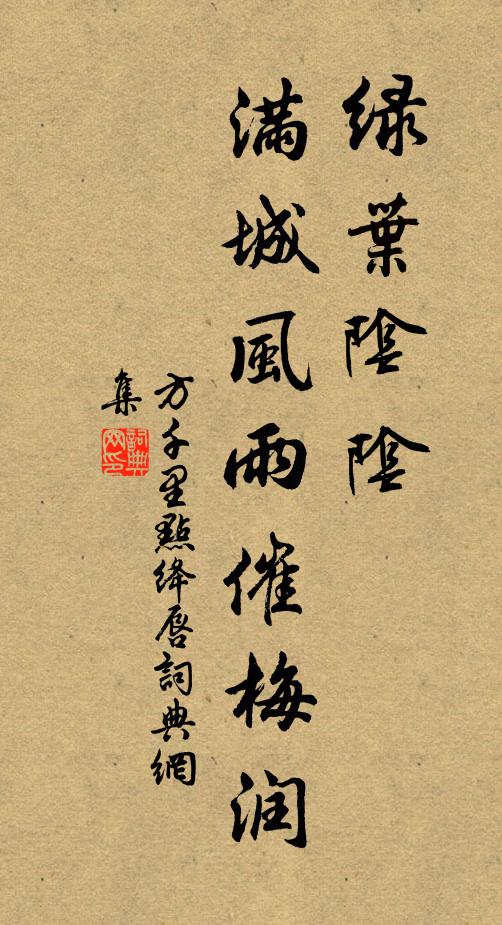 綠葉陰陰
滿城風雨催梅潤
方千里點絳唇詞典網
集
詞典網印